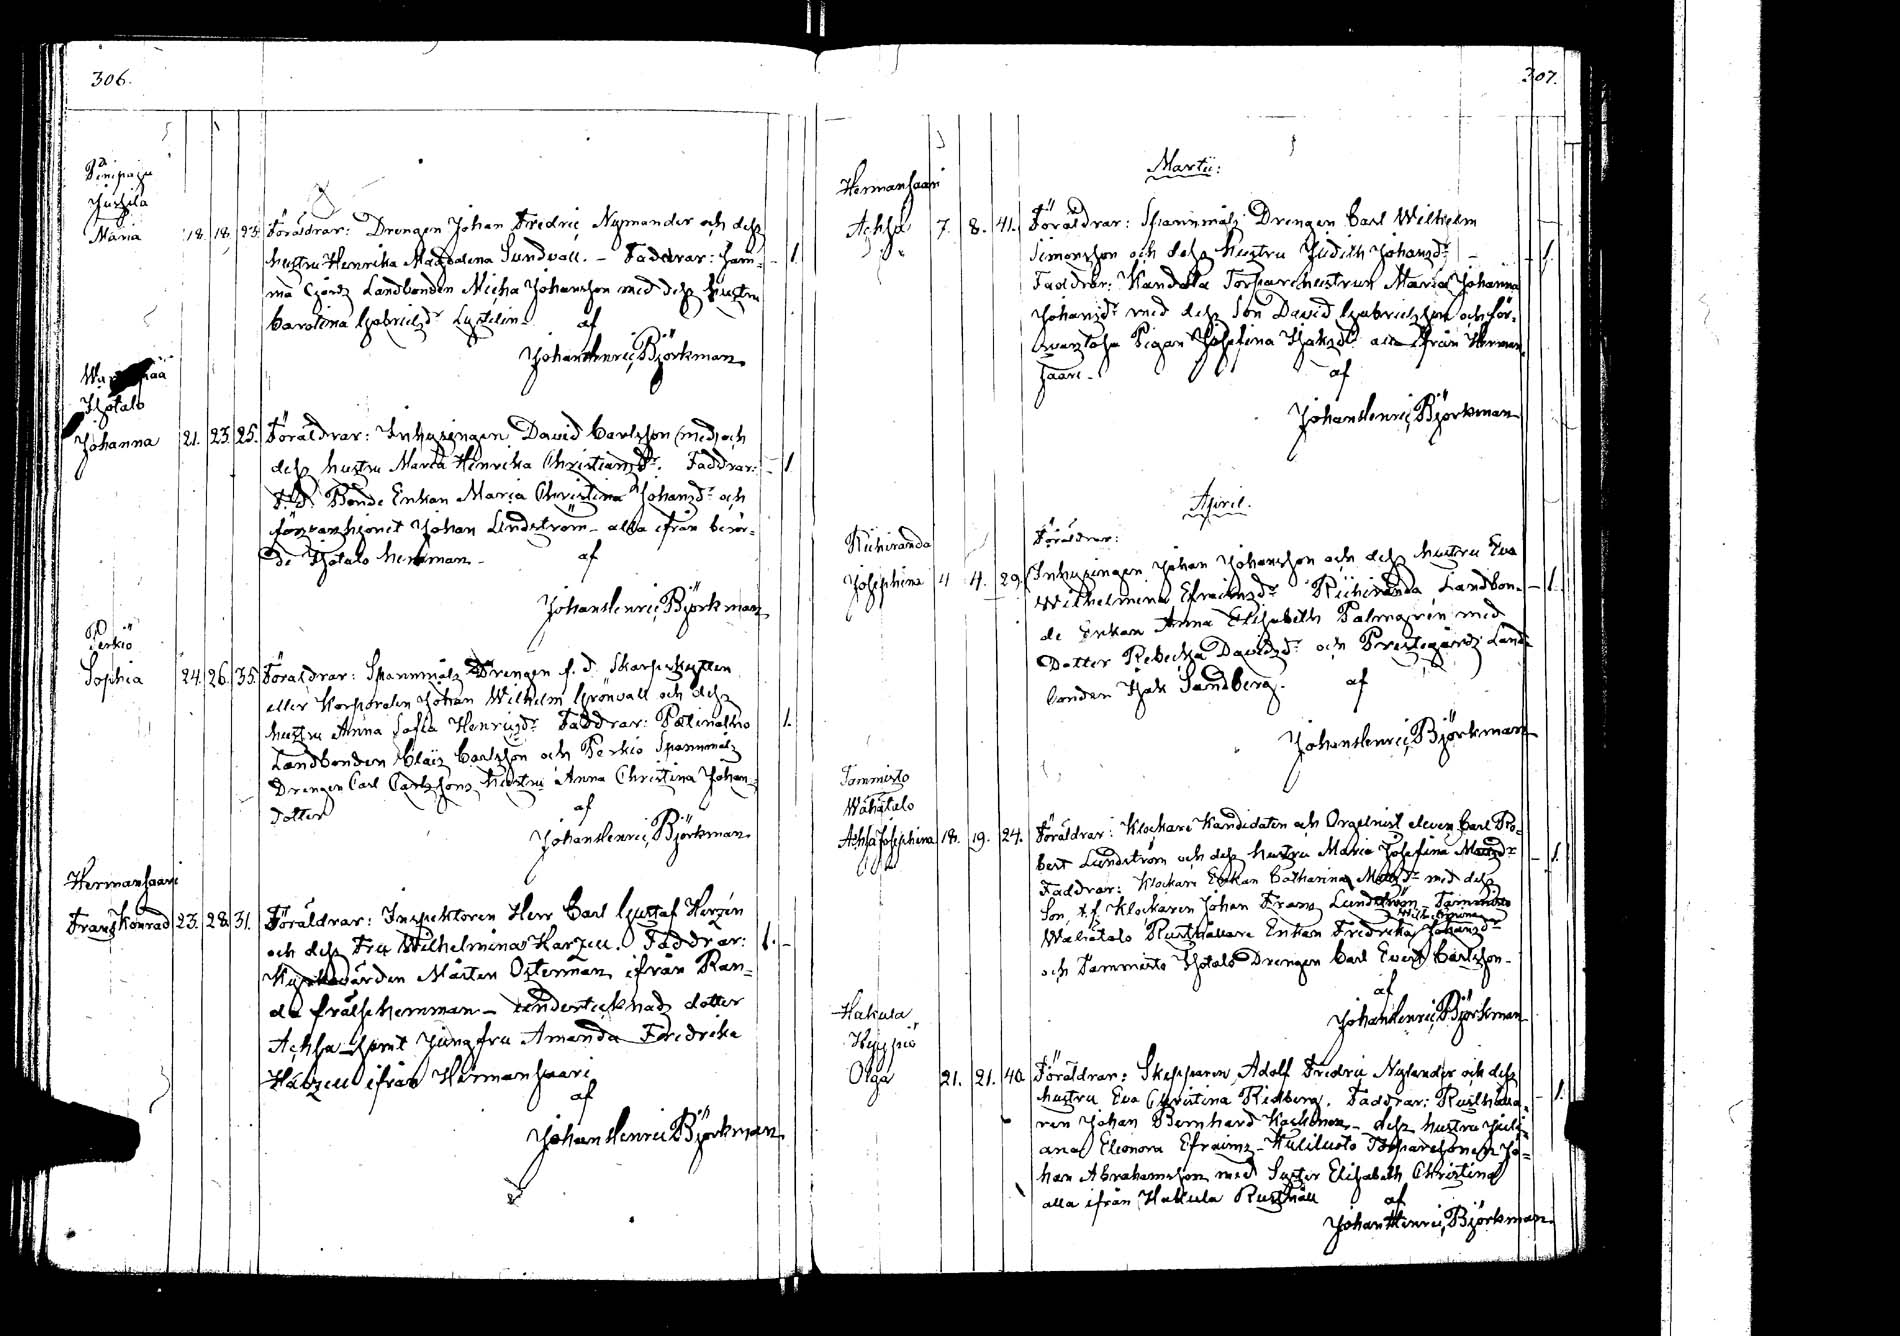 306.
Jussila
Maria 18. 18. 23. Föräldrar: Drengen Johan Fredric Nymander och dess
hustru Henrika Magdalena Sundvall. - Faddrar: sam- - 1.
ma Gårds Landbonden Micha Johansson med dess hustru
Carolina Gabrielsdr Lystelin. af
Johan Henric Björkman
Isotalo
Johanna 21. 23. 25. Föräldrar: Inhysingen David Carlsson (med) och
dess hustru Maria Henrika Christiansdr. Faddrar: - 1.
f.d. Bonde Enkan Maria Christina Johansdr och
Johan Lindström - alla ifrån berör-
de Isotalo hemman - af
Johan Henric Björkman
Perkiö
Sophia 24. 26. 35. Föräldrar: Spannmåls Drengen f.d. Skarpskytten
eller Korporalen Johan Wilhelm Grönvall och dess
hustru Anna Sofia Henricsdr Faddrar: 1.
Landbonden Claës Carlsson och Perkiö Spannmåls
Drengen Carl Carlssons hustru Anna Christina Johans
dotter af
Johan Henric Björkman
Hermansaari
Frans Konrad 23. 28. 31. Föräldrar: Inspektoren Herr Carl Gustaf Herzén
och dess Fru Wilhelmina Harzell. Faddrar: 1. -
Kyrkovärden Mårten Österman ifrån Ran-
da frälsehemman - undertecknads dotter
Achsa - samt Jungfru Amanda Fredrika
Harzell ifrån Hermansaari
af
Johan Henric Björkman
307.
Martii:
Hermansaari
Achsa 7. 8. 41. Föräldrar: Spannmåls Drengen Carl Wilhelm
Simonsson och dess hustru Judith Johansdr - 1.
Faddrar: Kandola Torpare hustrun Maria Johanna
Johansdr med dess Son David Gabrielsson och för-
Pigan Josefina Isaksdr alla ifrån Herman-
saari - af
Johan Henric Björkman
April.
Riihiranda Föräldrar:
Josephina 4 4. 29. Inhysingen Johan Johansson och dess hustru Eva
Wilhelmina Efraimsdr Riihiranda Landbon- - 1.
de Enkan Anna Elisabeth Palmgrén med
Dotter Rebecka Davidsdr och Prestegårds Land-
bonden Isak Sandberg. af
Johan Henric Björkman
Tammisto
Wähätalo
Achsa Josephina 18. 19. 24. Föräldrar: Klockare Kandidaten och Orgelnist eleven Carl Ro-
bert Lundström och dess hustru Maria Josefina - 1.
Faddrar: Klockare Enkan Catharina med dess
Son t.f. Klockaren Johan Frans Lundström - Tammisto
Wilhelmina
Wähätalo Rusthållare Enkan Fredrika Johansdr
och Tammisto Isotalo Drengen Carl Evert Carlsson -
af
Johan Henric Björkman
Hakula
Kyypiö
Olga 21. 21. 40. Föräldrar: Skepparen Adolf Fredric Nylander och dess
hustru Eva Christina Ridberg. Faddrar: Rusthålla- - 1.
ren Johan Bernhard - dess hustru Juli-
ana Eleonora Efraims - Kuliluoto Torparesonen Jo-
han Abrahamsson med Syster Elisabeth Christina
alla ifrån Hakula Rusthåll af
Johan Henric Björkman